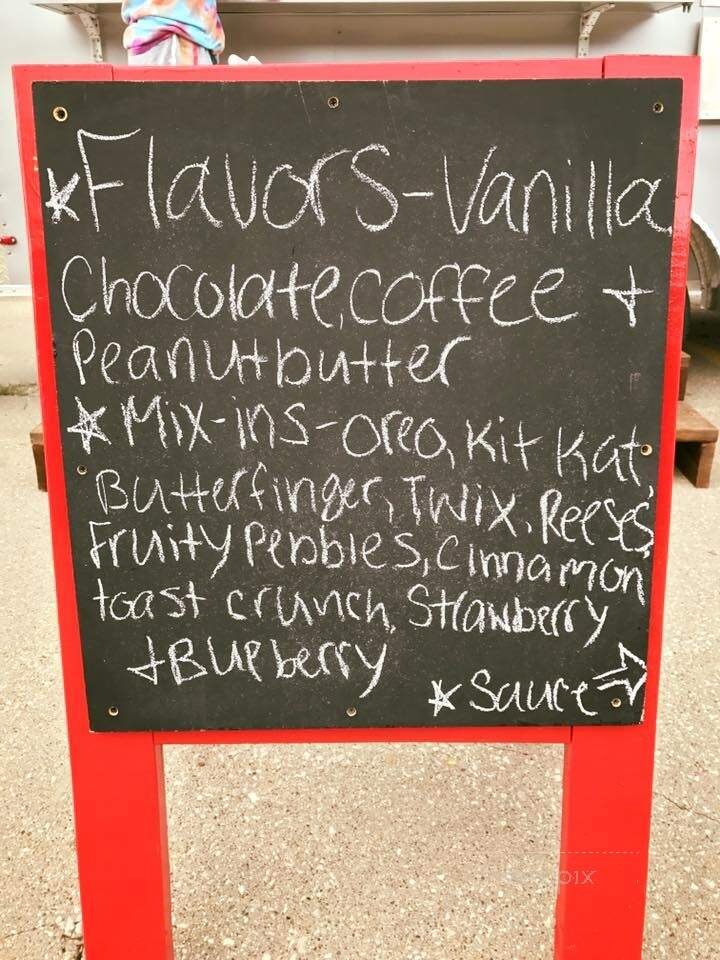 *Flavors-Vanilla
Chocolate, coffee +
Peanutbutter
*Mix-ins-oreo, Kit Kat
Butterfinger, Twix, Reeses,
Fruity Pebbles, Cinnamon
toast crunch, Strawberry
+ Blueberry
*Sauce→